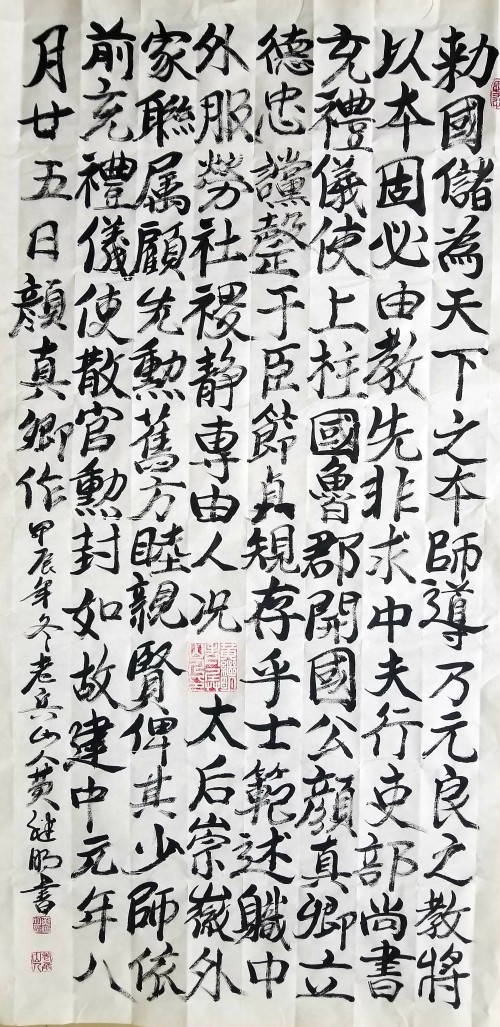 勅國儲為天下之本師導乃元良之教將
以本固必由教先非求中夫行吏部尚書
充禮儀使上柱國魯郡開國公顔真卿立
德忠讜罄于臣節貞規存乎士範述職中
外服勞社稷静専由人况太后崇徽外
家聯属顧先勲舊方睦親賢俾其少師依
前充禮儀使散官勲封如故建中元年八
月廿五日顔真卿作
甲辰年冬老兵山人黄继明書